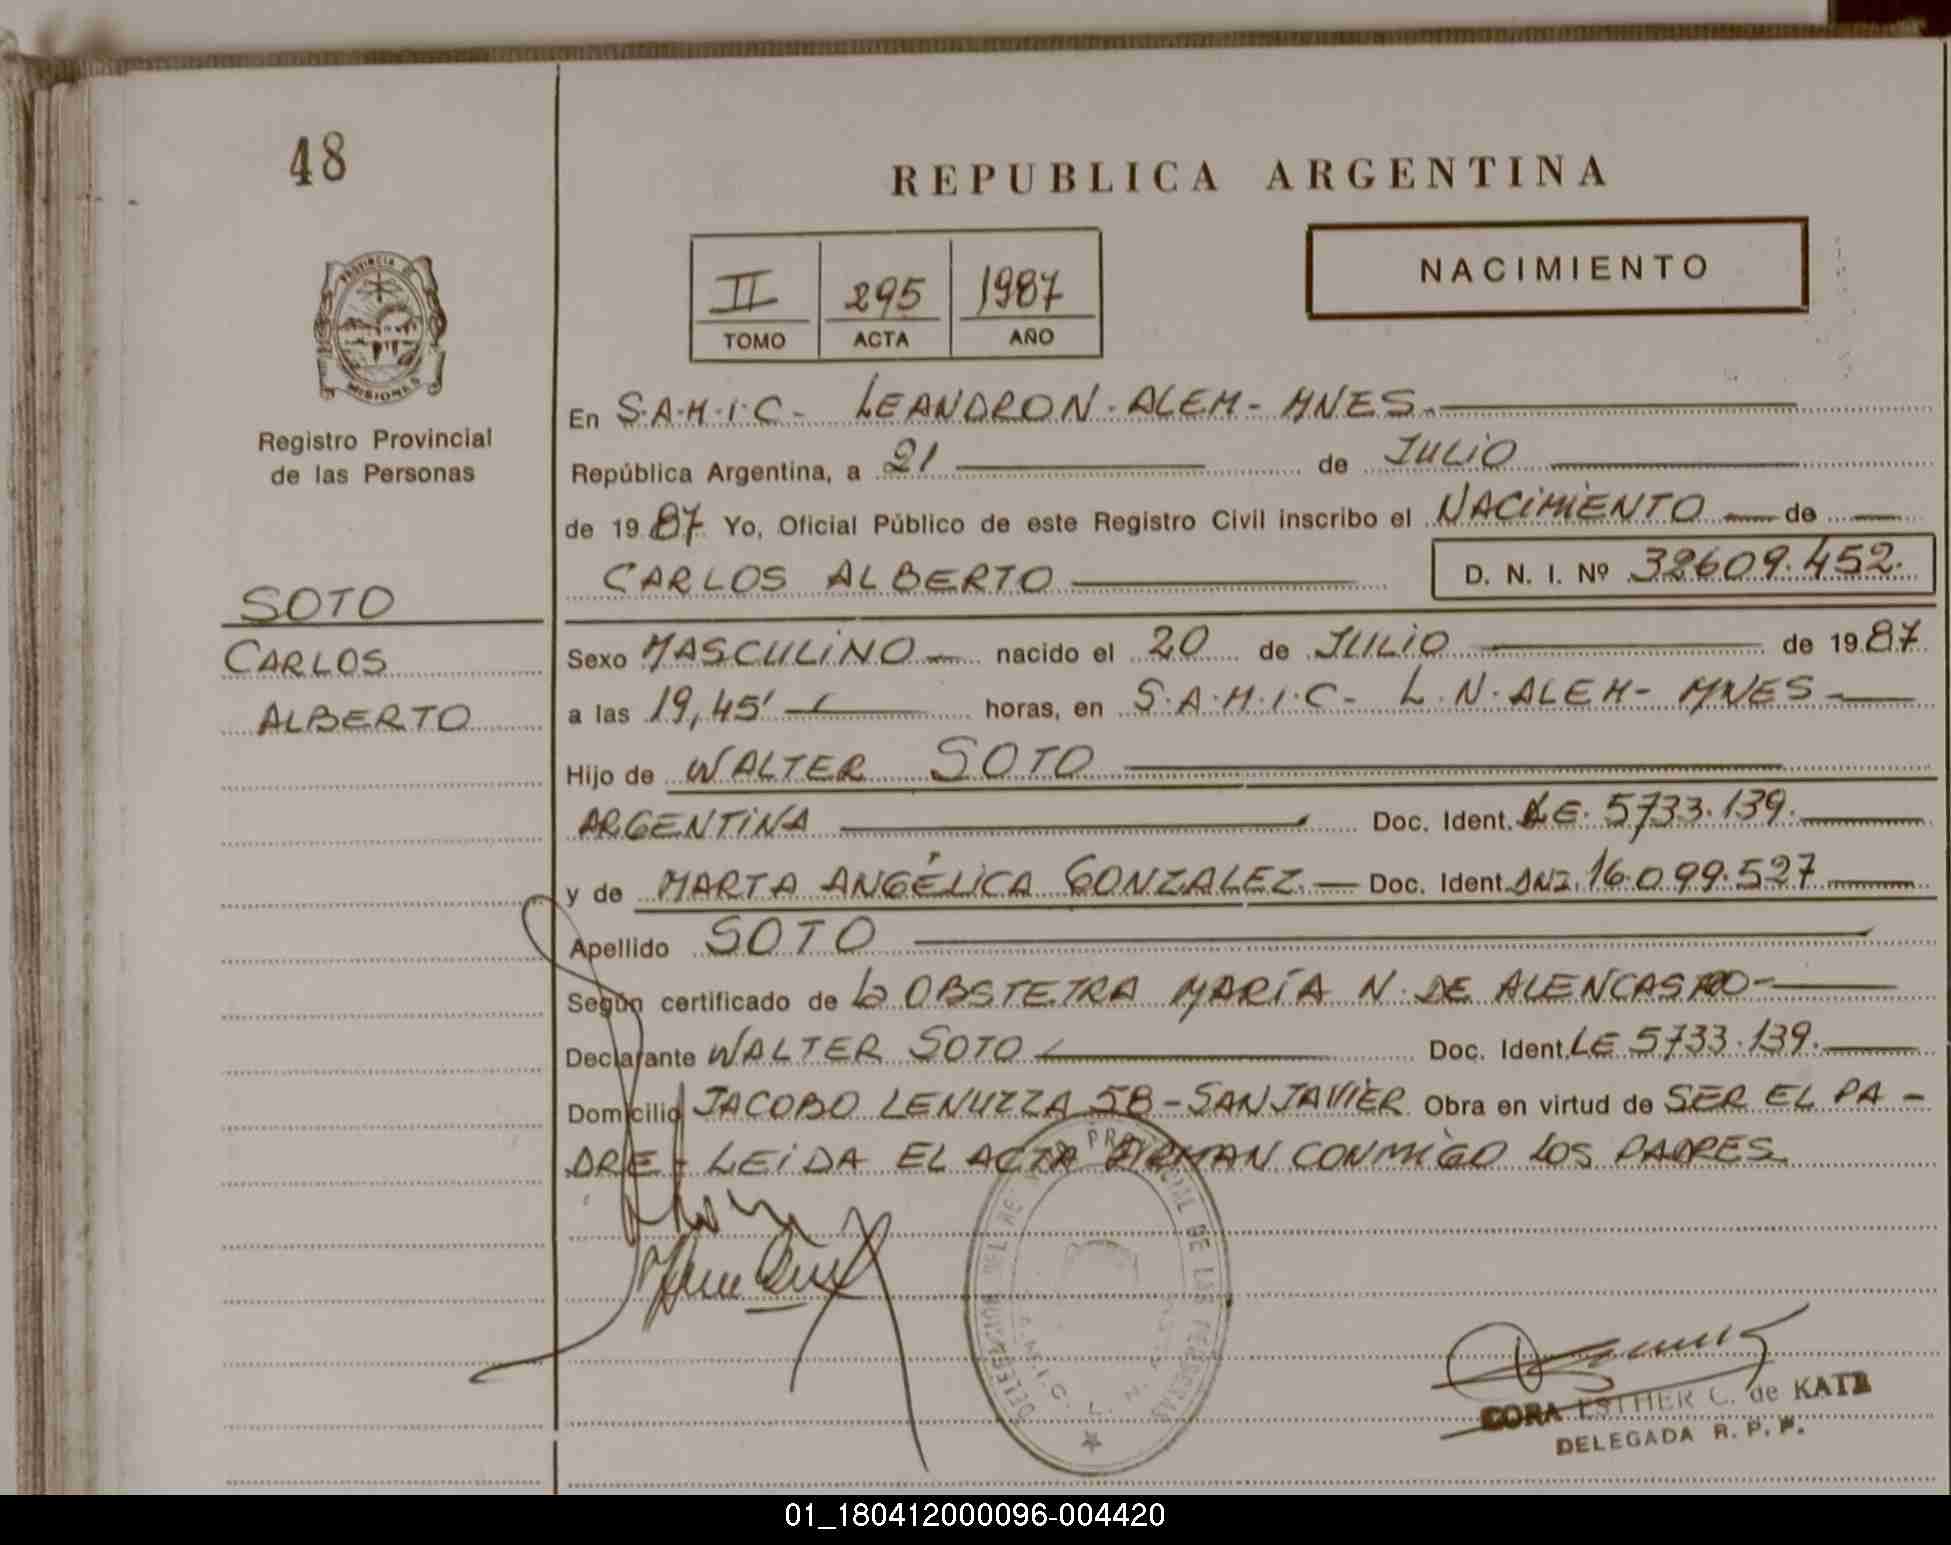 48
REPUBLICA ARGENTINA
II 295 1987
TOMO ACTA AÑO
NACIMIENTO
PROVINCIA DE MISIONES
Registro Provincial
de las Personas
SOTO
CARLOS
ALBERTO
En S.A.M.I.C- LEANDRO N. ALEM - MNES.
República Argentina, a 21 de JULIO
de 1987 Yo, Oficial Público de este Registro Civil inscribo el NACIMIENTO de
CARLOS ALBERTO D. N. I. Nº 32609.452.
Sexo MASCULINO nacido el 20 de JULIO de 1987
a las 19,45' horas, en S.A.M.I.C- L.N. ALEM - MNES -
Hijo de WALTER SOTO
ARGENTINA Doc. Ident. LE. 5733.139.
y de MARTA ANGÉLICA GONZALEZ Doc. Ident. DNI. 16.099.527
Apellido SOTO
Según certificado de la OBSTETRA MARÍA N. DE ALENCASTRO-
Declarante WALTER SOTO Doc. Ident. LE 5733.139.
Domicilio JACOBO LENUZZA 58 - SAN JAVIER Obra en virtud de SER EL PA-
DRE - LEIDA EL ACTA FIRMAN CONMIGO LOS PADRES
DELEGACION DEL REGISTRO PROVINCIAL DE LAS PERSONAS
S.A.M.I.C. L. N. ALEM
CORA ESTHER C. de KATZ
DELEGADA R. P. P.
01_180412000096-004420